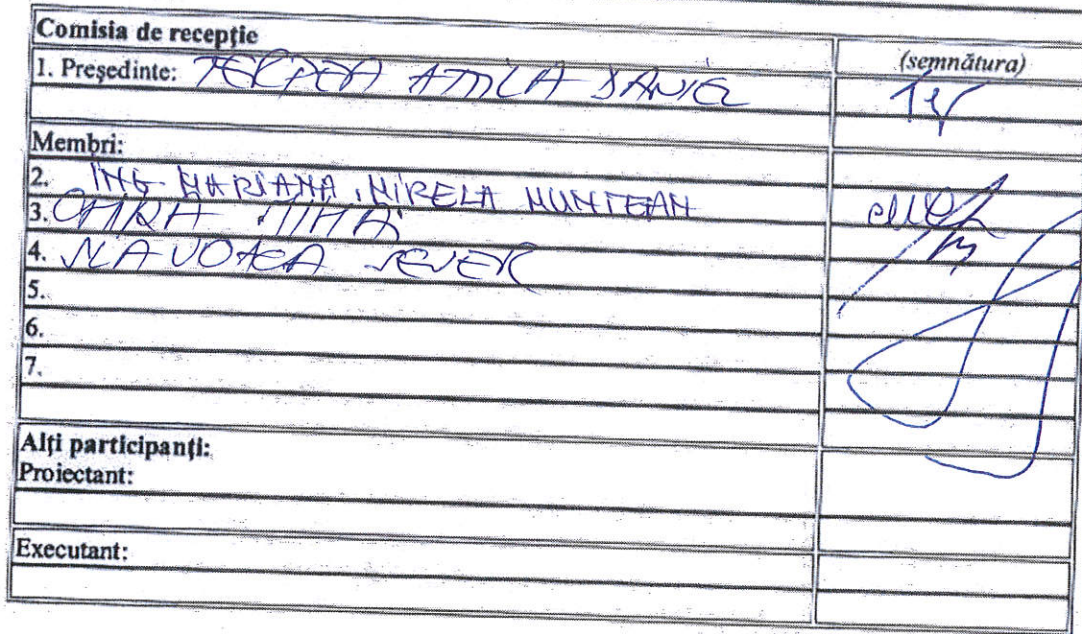 Comisia de recepție
(semnătura)
1. Președinte: TERPEA ATILA DANIEL
Membri:
2. ING MARIANA MIRELA MUNTEAN
3. MIHAI
4. SEVER
5.
6.
7.
Alți participanți:
Proiectant:
Executant: